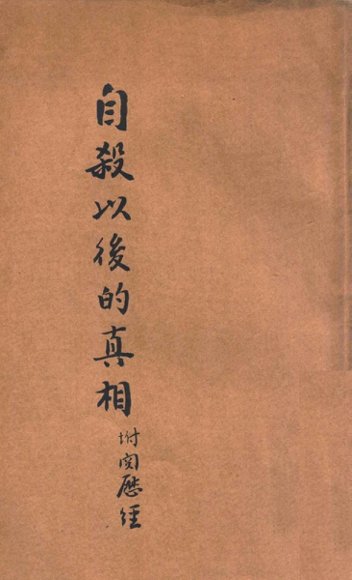 自殺以後的真相
坿閱歷經